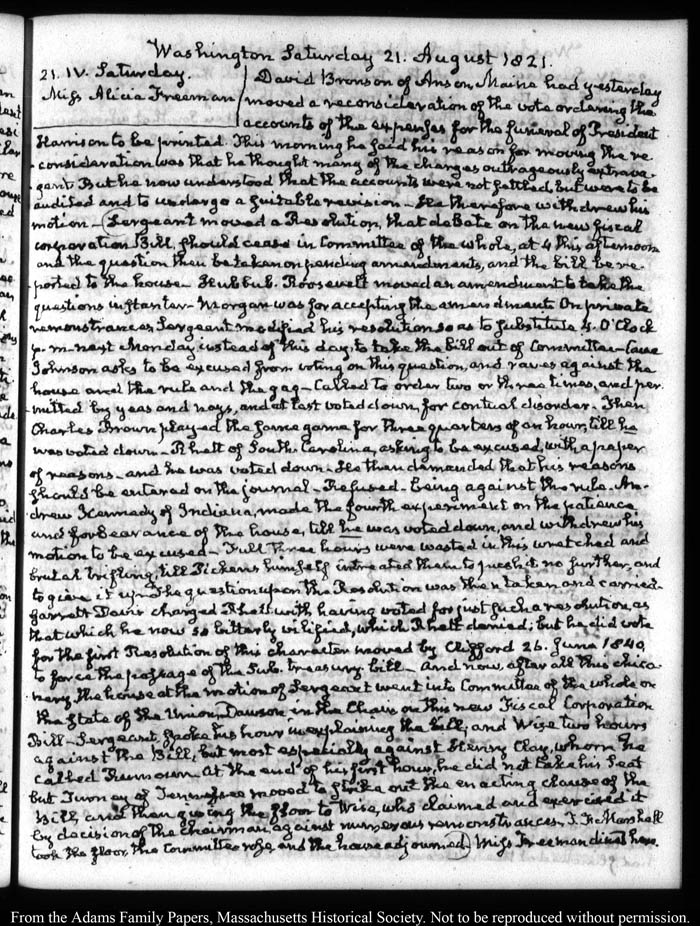 Washington Saturday 21. August 1821.
21. IV. Saturday.
Miss Alicia Freeman
David Bronson of Anson Maine had yesterday
moved a reconsideration of the vote ordering the
accounts of the expenses for the funeral of President
Harrison to be printed. This morning he said his reason for moving the re-
consideration was that he thought many of the charges outrageously extrava-
gant. But he now understood that the accounts were not settled, but were to be
audited and to undergo a suitable revision – He therefore withdrew his
motion – Sergeant moved a Resolution, that debate on the new fiscal
corporation Bill, should cease in Committee of the whole, at 4 this afternoon
and the question then be taken on pending amendments, and the bill be re-
ported to the house – Hubbub. Roosevelt moved an amendment to take the
questions instanter – Morgan was for accepting the amendment. On private
remonstrances Sergeant modified his resolution so as to substitute 4. O'Clock
p. m. next Monday instead of this day, to take the bill out of Committee – Cave
Johnson asks to be excused from voting on this question, and raves against the
house and the rule and the gag – Called to order two or three times, and per-
mitted by yeas and nays, and at last voted down, for contual disorder. Then
Charles Brown played the same game for three quarters of an hour, till he
was voted down – Rhett of South Carolina, asking to be excused, with a paper
of reasons – and he was voted down – He then demanded that his reasons
should be entered on the journal – Refused. being against the rule. An-
drew Kennedy of Indiana, made the fourth experiment on the patience
and forbearance of the house, till he was voted down, and withdrew his
motion to be excused – Full three hours were wasted in this wretched and
brutal trifling, till Pickens himself intreated them to push it no further, and
to give it up – The question upon the Resolution was then taken and carried –
Garrett Davis charged Rhett with having voted for just such a resolution as
that which he now so bitterly vilified, which Rhett denied; but he did vote
for the first Resolution of this character moved by Clifford 26. June 1840,
to force the passage of the Sub. treasury bill – And now, after all this chica-
nery, the house at the motion of Sergeant went into Committee of the whole on
the State of the Union, Dawson in the Chair, on this new Fiscal Corporation
Bill – Sergeant spoke his hour in explaining the bill, and Wise two hours
against the Bill, but most especially against Henry Clay, whom he
called At the end of his first hour, he did not take his seat
but Turney of Tennessee moved to strike out the enacting clause of the
Bill, and then giving the floor to Wise, who claimed and exercised it
by decision of the chairman, against numerous remonstrances. T. F. Marshall
took the floor, the Committee rose, and the house adjourned. Miss Freeman dined here.
From the Adams Family Papers, Massachusetts Historical Society. Not to be reproduced without permission.